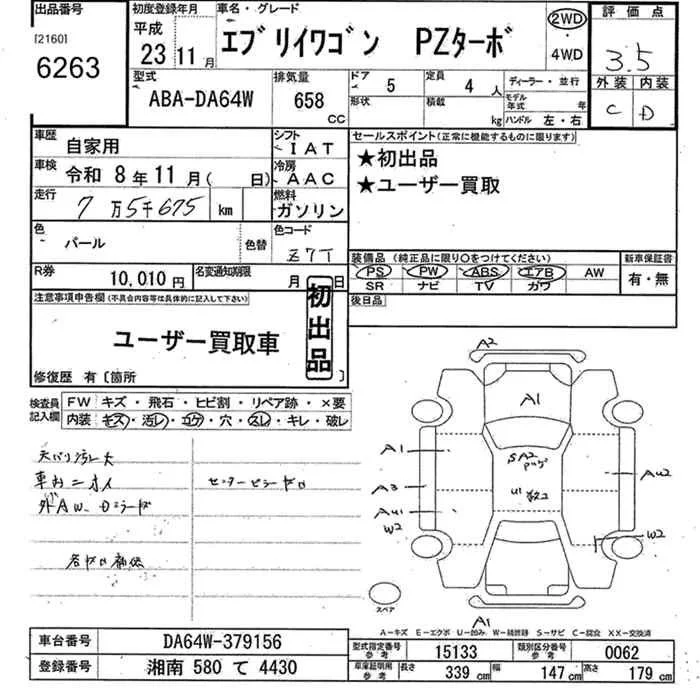 出品番号
[2160]
6263
初度登録年月
平成
23 11月
車名・グレード
エブリイワゴン PZターボ
2WD
・
4WD
評価点
3.5
外装 内装
C D
型式
ABA-DA64W
排気量
658 CC
ドア 5
定員 4 人
形状
積載 kg
ディーラー・並行
モデル年式 年
ハンドル 左・右
車歴 自家用
シフト IAT
車検 令和 8年 11月( 日)
冷房 AAC
走行 7万5千675 km
燃料 ガソリン
色 パール
色替
色コード Z7T
R券 10,010円
名変通知期限 月 日
セールスポイント(正常に機能するものに限ります)
★初出品
★ユーザー買取
装備品 (純正品に限り○をつけてください)
PS PW ABS エアB AW
SR ナビ TV カワ
新車保証書
有・無
後日品
注意事項申告欄(不具合内容等は具体的に記入して下さい)
ユーザー買取車
初出品
修復歴 有〔箇所 〕
検査員記入欄
FW キズ・飛石・ヒビ割・リペア跡・×要
内装 キズ・汚レ・コゲ・穴・スレ・キレ・破レ
天バリ汚レ大
外AW
センターピラー
A2
A1
SA2
A1
A3
AU1
W2
U1
AU2
W2
A1
スペア
A-キズ E-エクボ U-凹み W-補修跡 S-サビ C-腐食 XX-交換済
車台番号 DA64W-379156
登録番号 湘南 580 て 4430
型式指定番号 参考 15133
類別区分番号 参考 0062
車庫証明用 参考 長さ 339 cm 幅 147 cm 高さ 179 cm